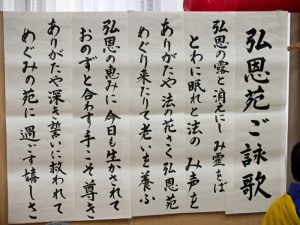 弘恩苑ご詠歌
弘恩の露と消えにしみ霊をば
とわに眠れと法のみ声を
ありがたや法の花さく弘恩苑
めぐり来たりて老いを養ふ
弘恩の恵みに今日も生かされて
おのずと合わす手こそ尊き
ありがたや深き誓いに救われて
めぐみの苑に過ごす嬉しさ